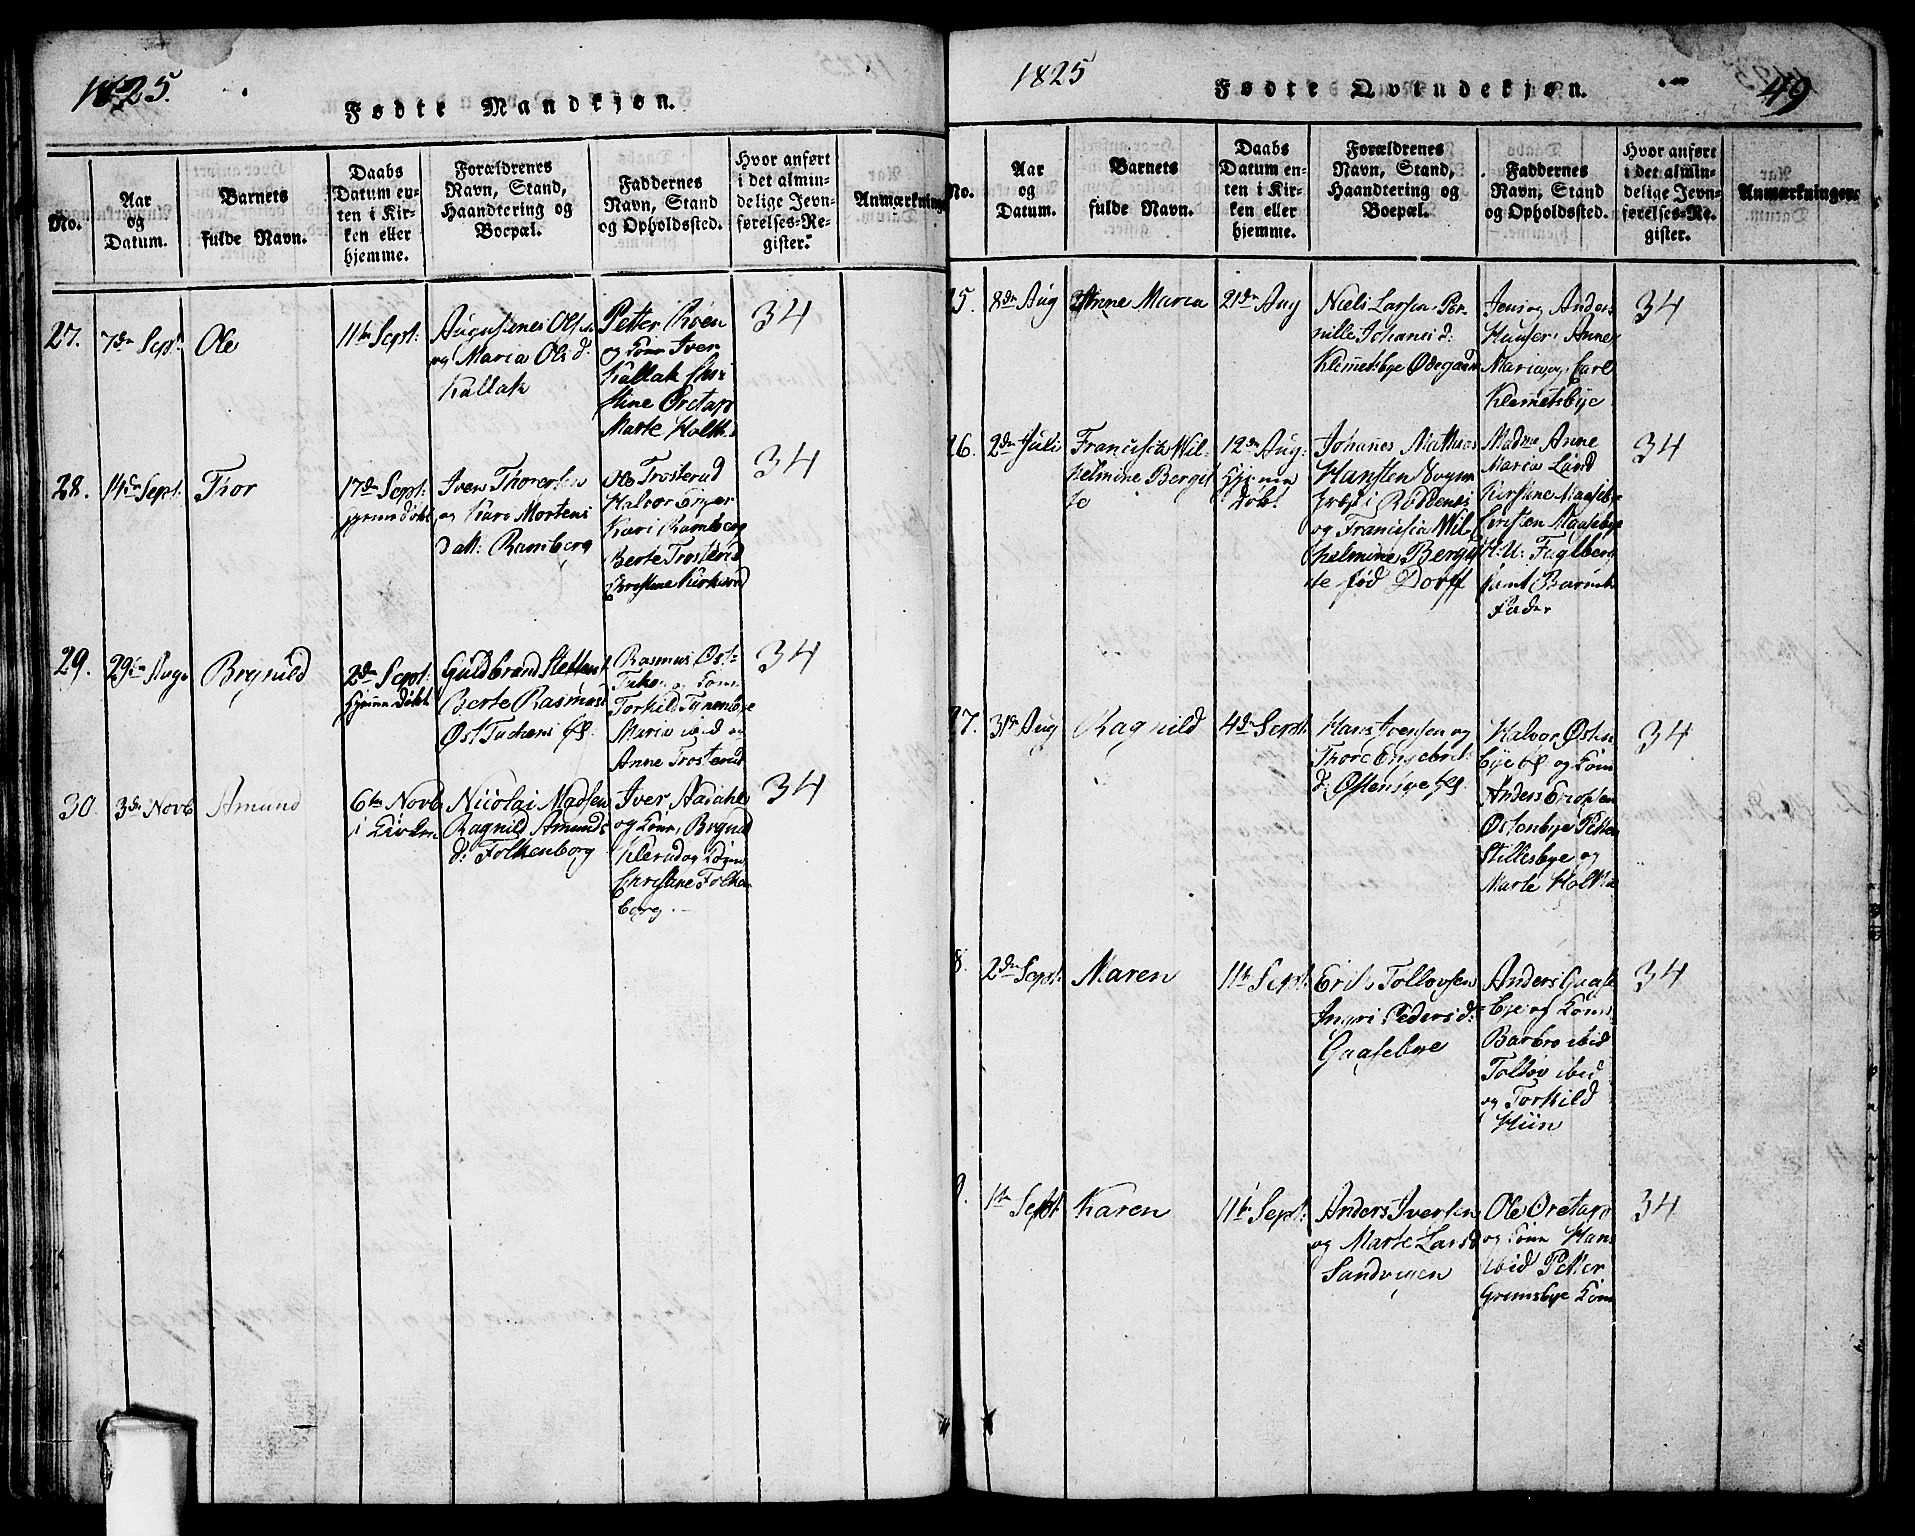 1825.
Fødte Mandkjøn.
No.
Aar
og
Datum.
Barnets
fulde Navn.
Daabs
Datum en-
ten i Kir-
ken eller
hjemme.
Forældrenes
Navn, Stand,
Haandtering og
Boepæl.
Faddernes
Navn, Stand
og Opholdssted.
Hvor anført
i det almin-
delige Jevn-
førelses-Re-
gister.
Anmærkning
27.
7de Sept:
Ole
11te Sept:
Augustinus Olsen
og Maria Ols d:
Kallak
Petter Roen
og Kone Iver
Kallak Chri
stine Oretarp
Marte Holth
34
28.
14de Sept:
Thor
17de Sept:
hjemme døbt
Iver Thorersen
og Kari Mortens
Datt: Ramberg
Ole Trosterud
Halvor
Kari Ramberg
Berte Trosterud
Christine Kirkerud
34
29.
29de Aug
Brynild
2de Sept:
hjemme døbt
Guldbrand Steffens
Berte Rasmusd
Øst Tuchens
Rasmus Øst-
Tuken og Kone
Torkild Tynnesbye
Maria ibid og
Anne Trosterud
34
30
3de Novb
Amund
6te Novb
i Kirken
Nicolai Madsen
Ragnild Amunds
d: Folkenborg
Iver
og Kone, Brynild
Klerud og Kone
Christine Folken
borg.
34
1825
Fødte Qvindekjøn.
49
No.
Aar
og
Datum.
Barnets
fulde Navn.
Daabs
Datum en-
ten i Kir-
ken eller
hjemme.
Forældrenes
Navn, Stand,
Haandtering og
Boepæl.
Faddernes
Navn, Stand
og Opholdssted.
Hvor anført
i det almin-
delige Jevn-
førelses-Re-
gister.
Anmærkninger.
5.
8de Aug
Anne Maria
21de Aug
Niels Larsen Per-
nille Johanes d:
Klemetsbye Ødegaard
Jens og Anders
Huuser Anne
Maria og Carl
Klemetsbye
34
6.
2de Juli
Francisca Wil-
helmine Bergit
te
12de Aug:
Hjemme
Døbt
Johanes Mathias
Hansten Sogne
Præst i Rødenes
og Francisca Wil
helmine Bergit
te fød Dorff
Madme Anne
Maria Lund
Kirstine Maasebye
Christen Maasebye
H: U: Fuglberg
samt Barnets
Fader
34
7.
31de Aug
Ragnild
4de Sept:
Hans Iversen og
Thore Engebret
d: Østensbye
Halvor Østen
bye og Kone
Anders
Østenbye Petter
Stillesbye og
Marte Holth
34
8.
2de Sept:
Maren
11te Sept:
Erik Tollovsen
Ingri Peders d:
Gaasebye
Anders Gaase
bye og Kone
Barbro ibid
Tollov ibid
og Torkild
Hiin
34
9.
1te Sept
Karen
11te Sept:
Anders Iversen
og Marte Larsd
Sandvigen
Ole Oretarp
og Kone Hans
ibid Petter
Grimsbye Kone
34